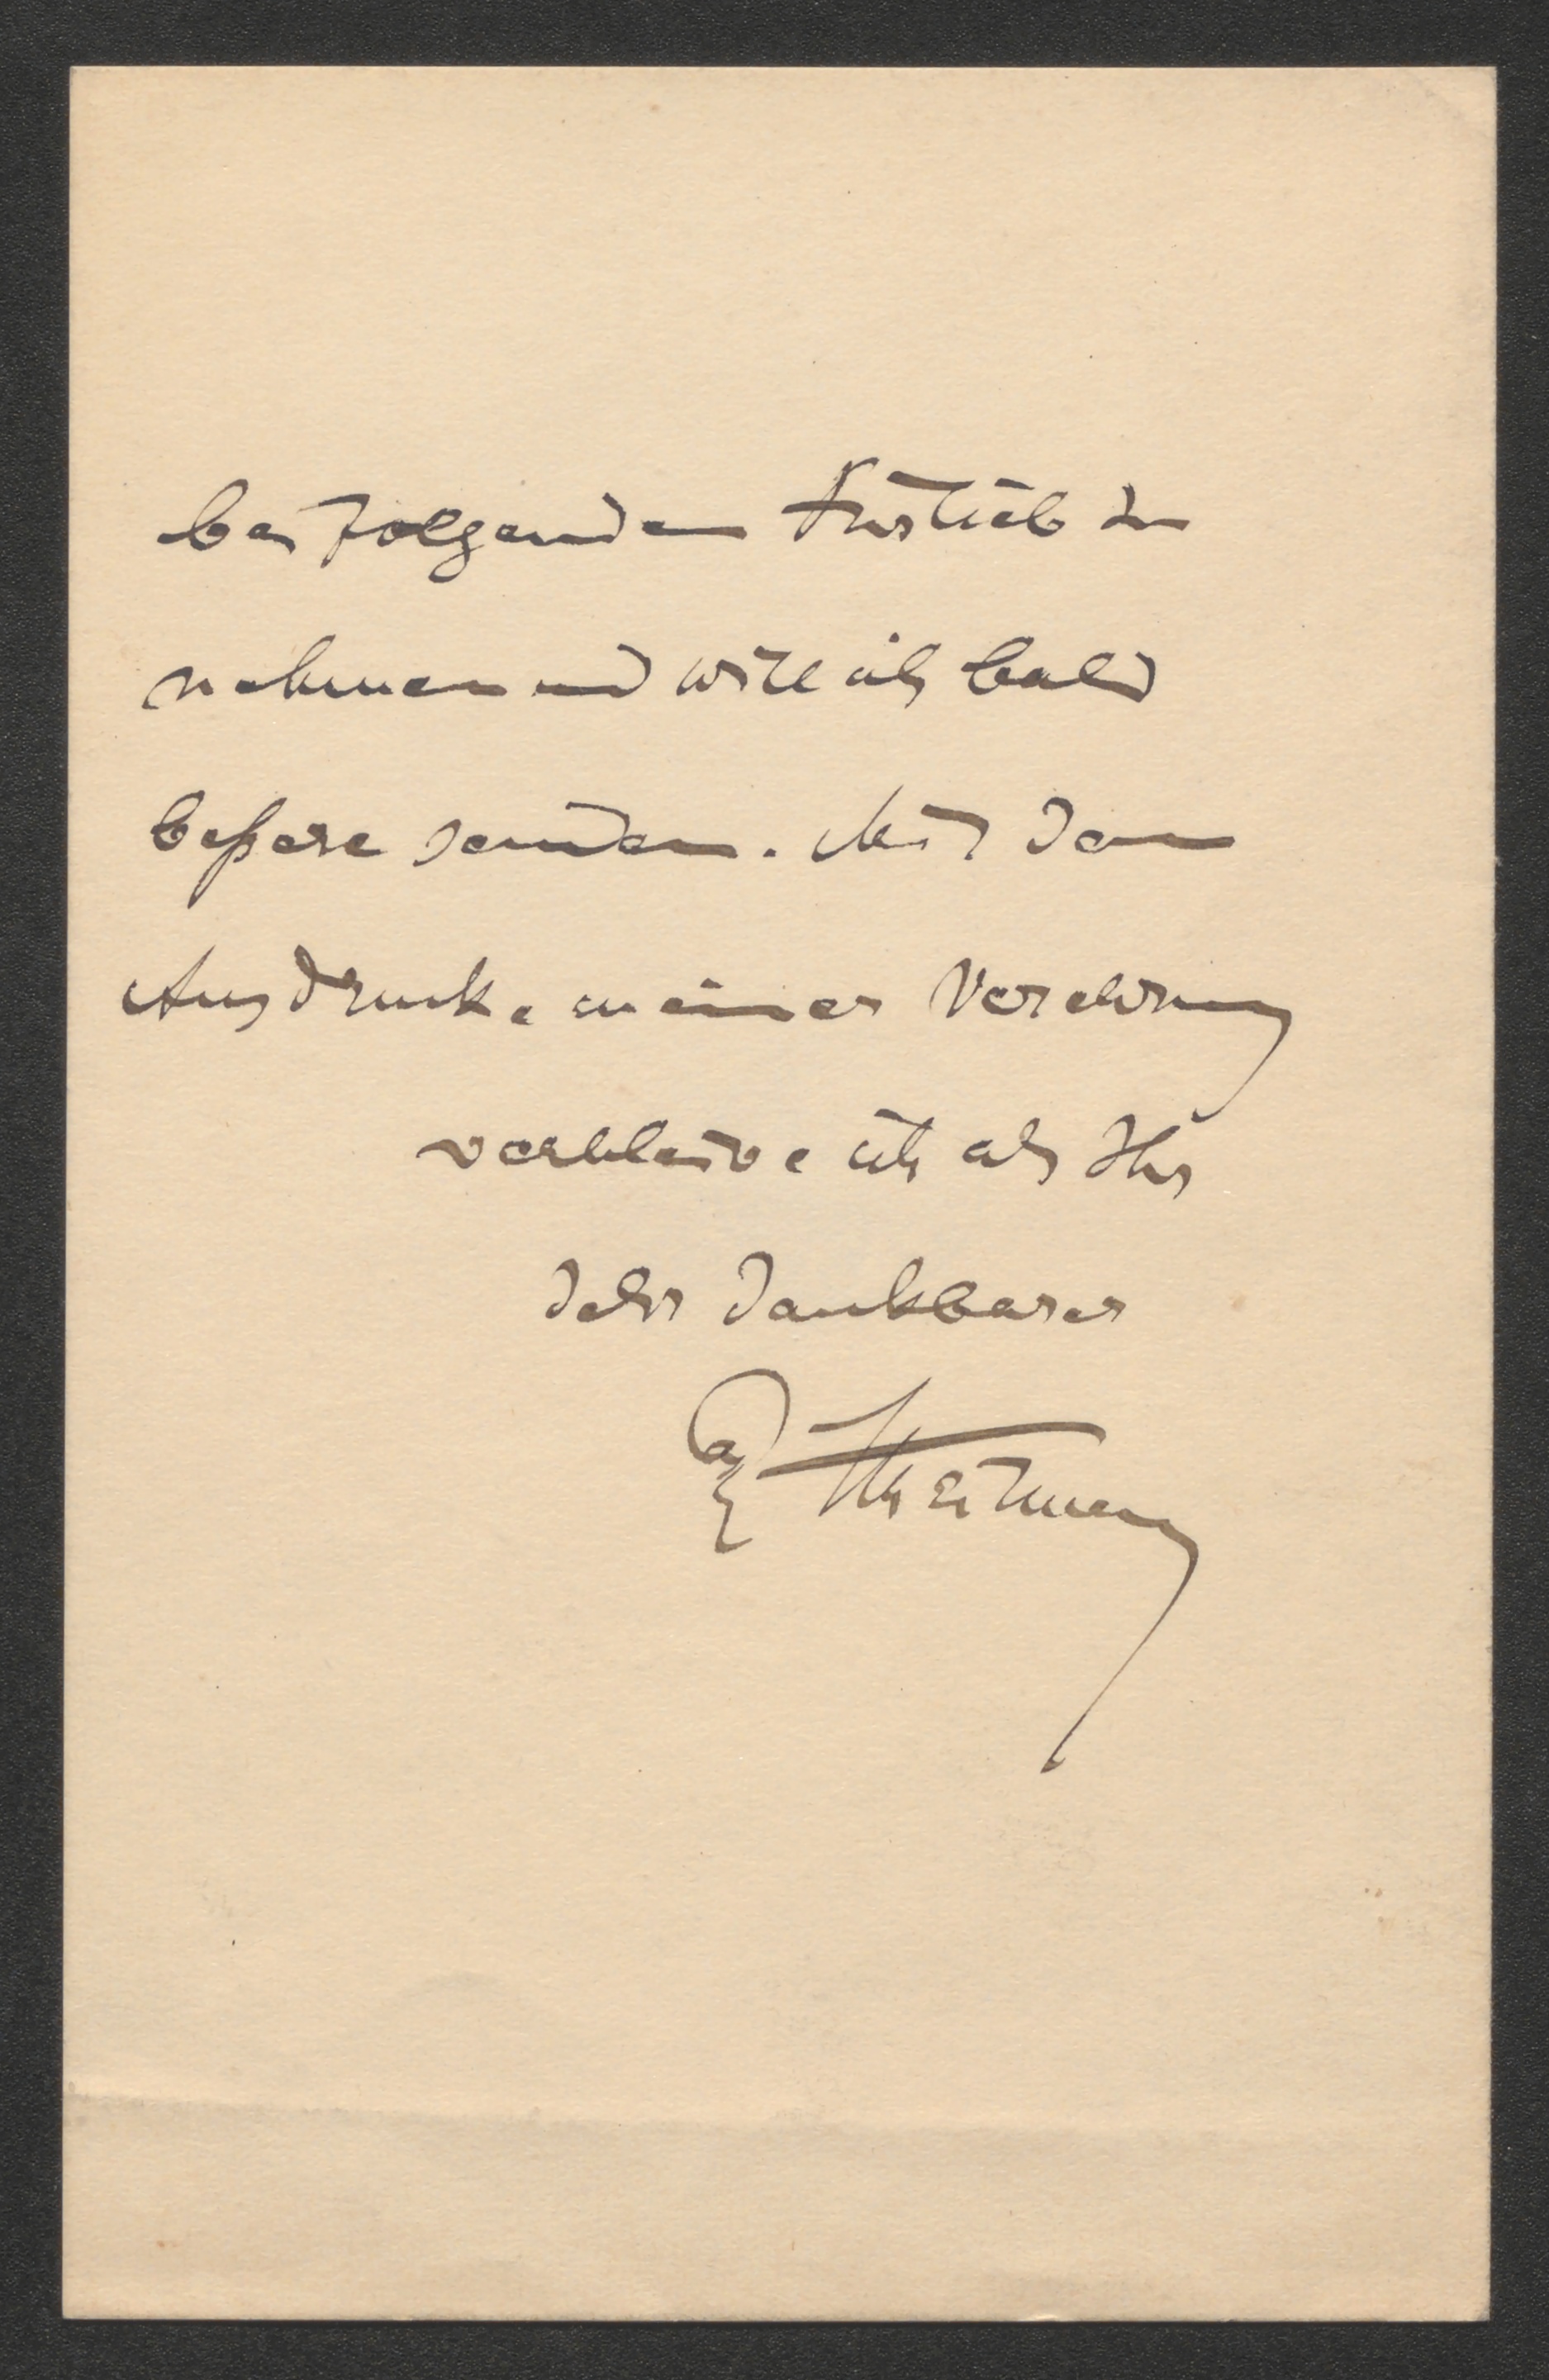 beifolgenden fürlieb zu
nehmen und will ich bald
beßere senden. Mit dem
Ausdrucke meiner Verehrung
verbleibe ich als Ihr
sehr dankbarer